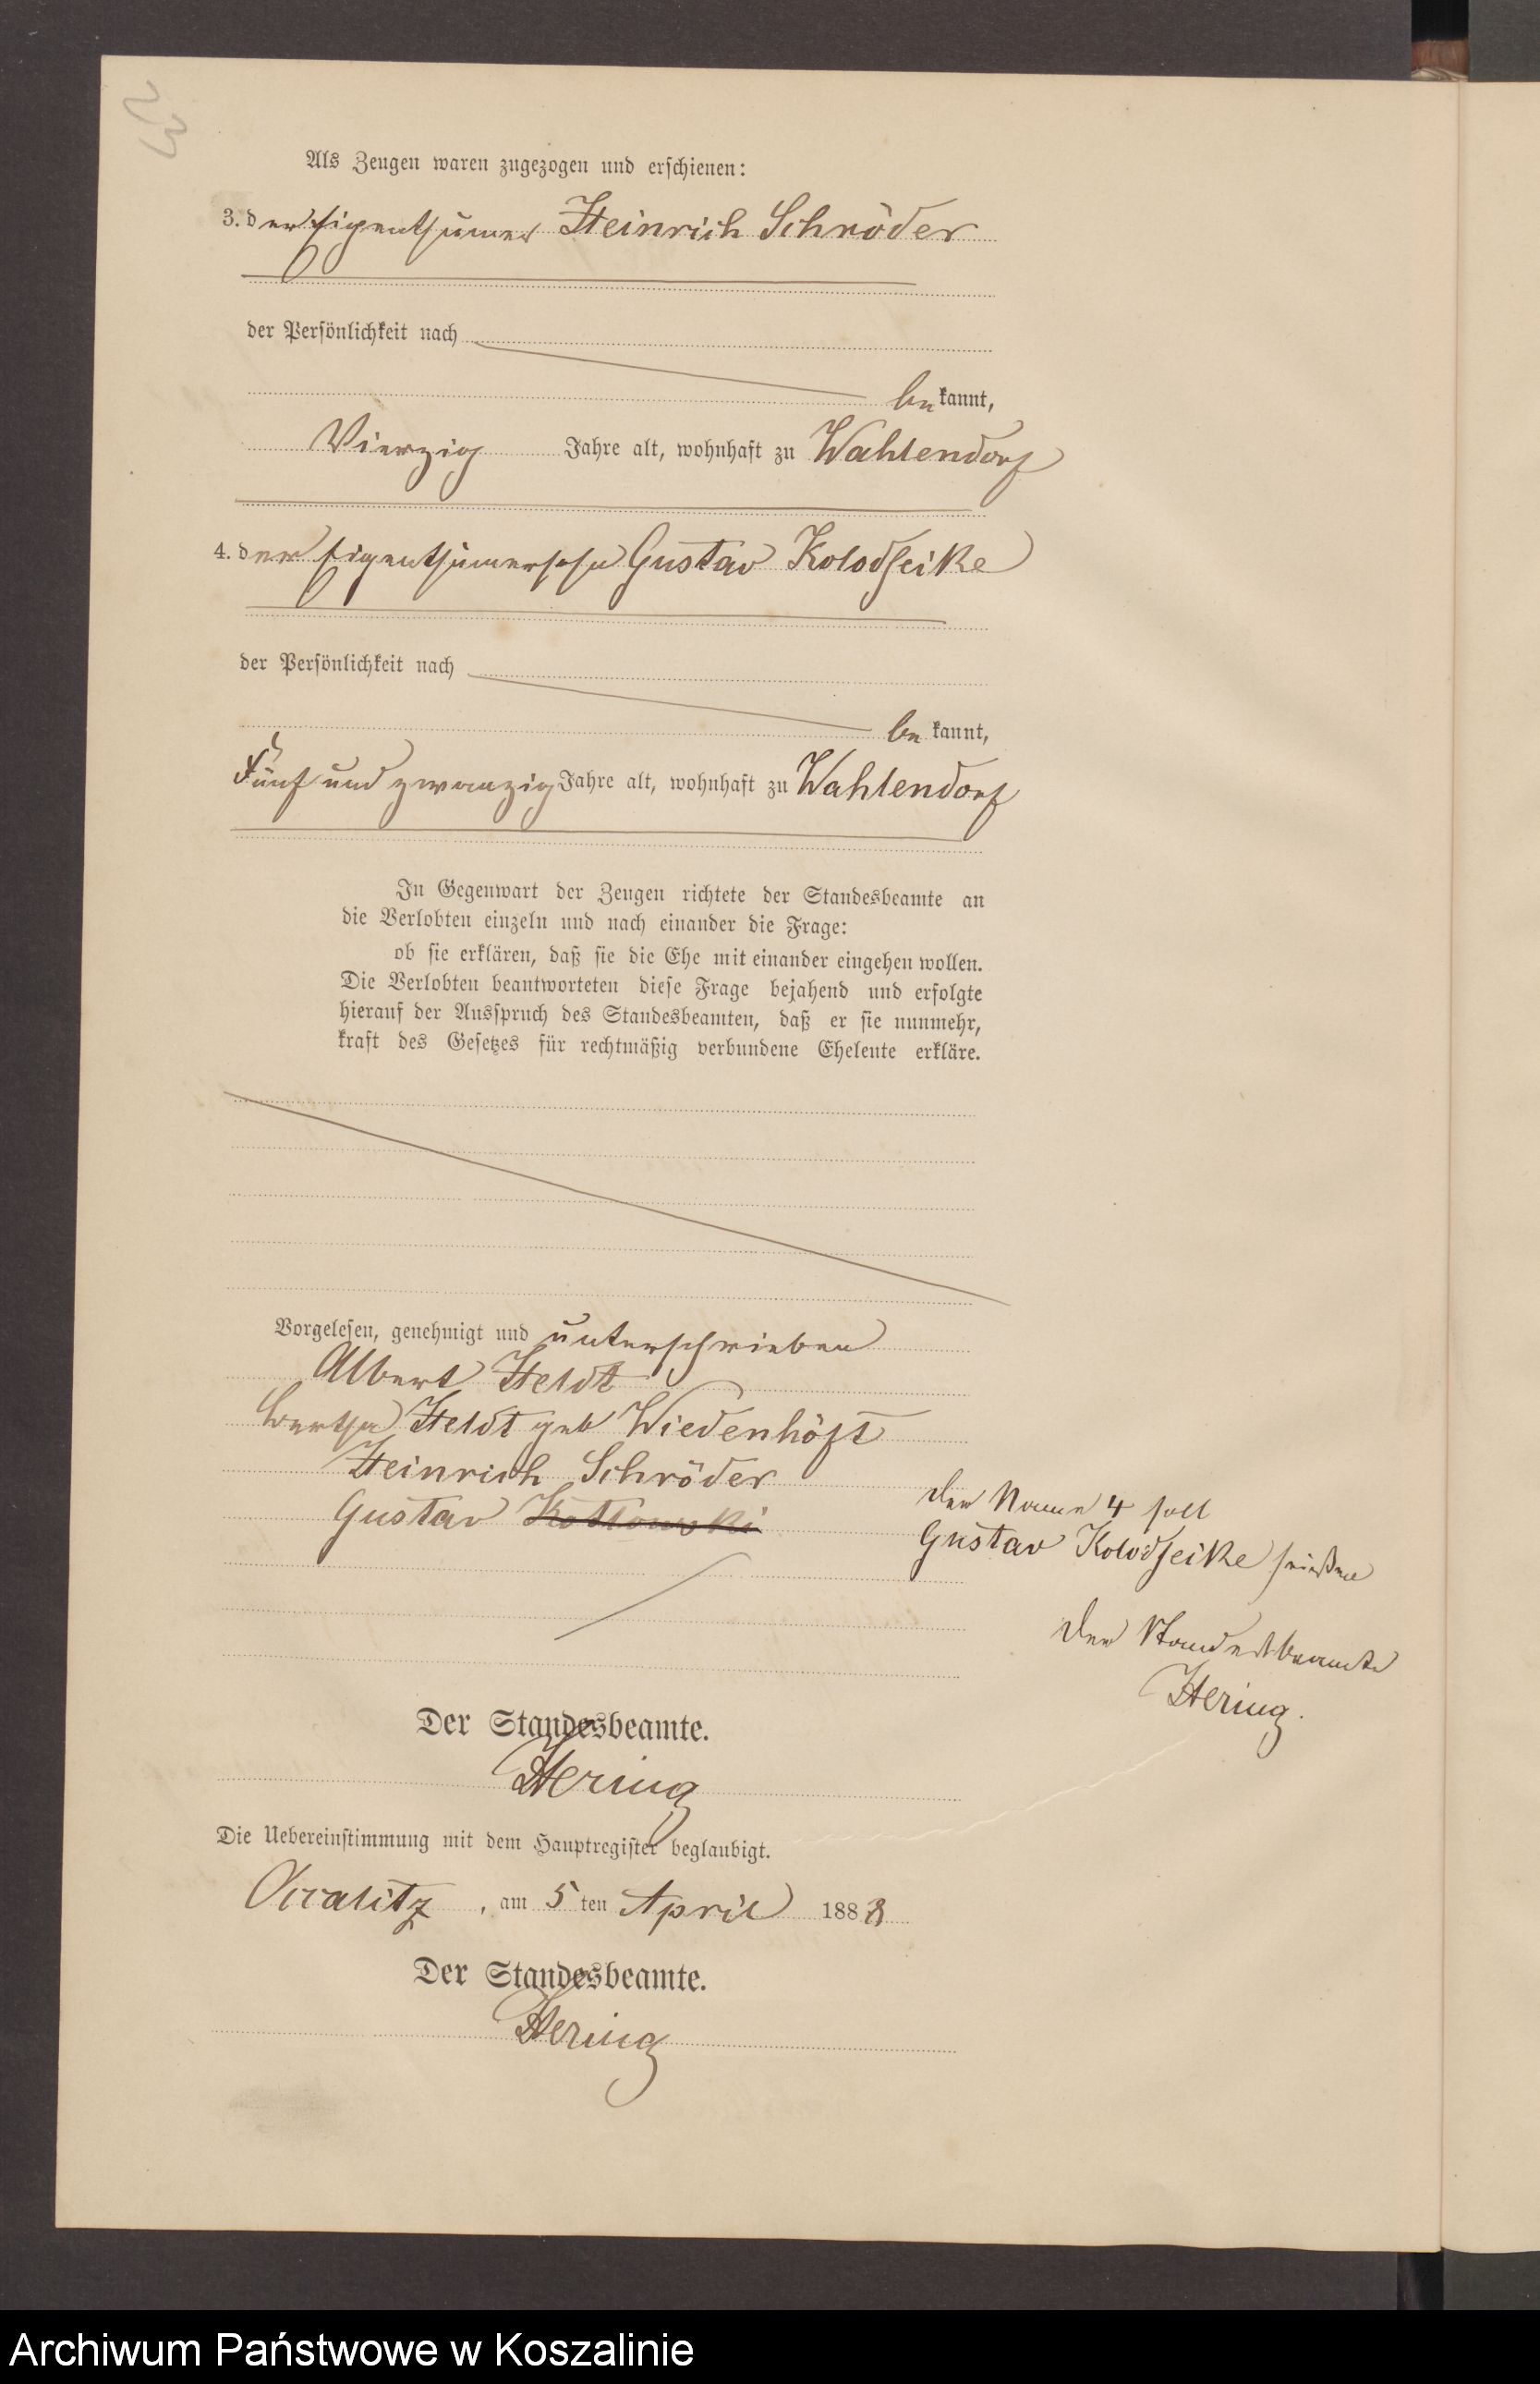 Als Zeugen waren zugezogen und erschienen:
3. der Eigenthümer Heinrich Schröder
der Persönlichkeit nach
bekannt,
Vierzig Jahre alt, wohnhaft zu Wahlendorf
4. der Eigenthümersohn Gustav Kolodseike
der Persönlichkeit nach
bekannt,
Fünf und zwanzig Jahre alt, wohnhaft zu Wahlendorf
In Gegenwart der Zeugen richtete der Standesbeamte an
die Verlobten einzeln und nach einander die Frage:
ob sie erklären, daß sie die Ehe mit einander eingehen wollen.
Die Verlobten beantworteten diese Frage bejahend und erfolgte
hierauf der Ausspruch des Standesbeamten, daß er sie nunmehr,
kraft des Gesetzes für rechtmäßig verbundene Eheleute erkläre.
Vorgelesen, genehmigt und unterschrieben
Albert Heldt
Bertha Heldt geb Wiedenhöft
Heinrich Schröder
Gustav Kotlowski
Der Name 4 soll
Gustav Kolodseike heißen
Der Standesbeamte
Hering.
Der Standesbeamte.
Hering
Die Uebereinstimmung mit dem Hauptregister beglaubigt.
Occalitz, am 5 ten April 1888
Der Standesbeamte.
Hering
Archiwum Państwowe w Koszalinie